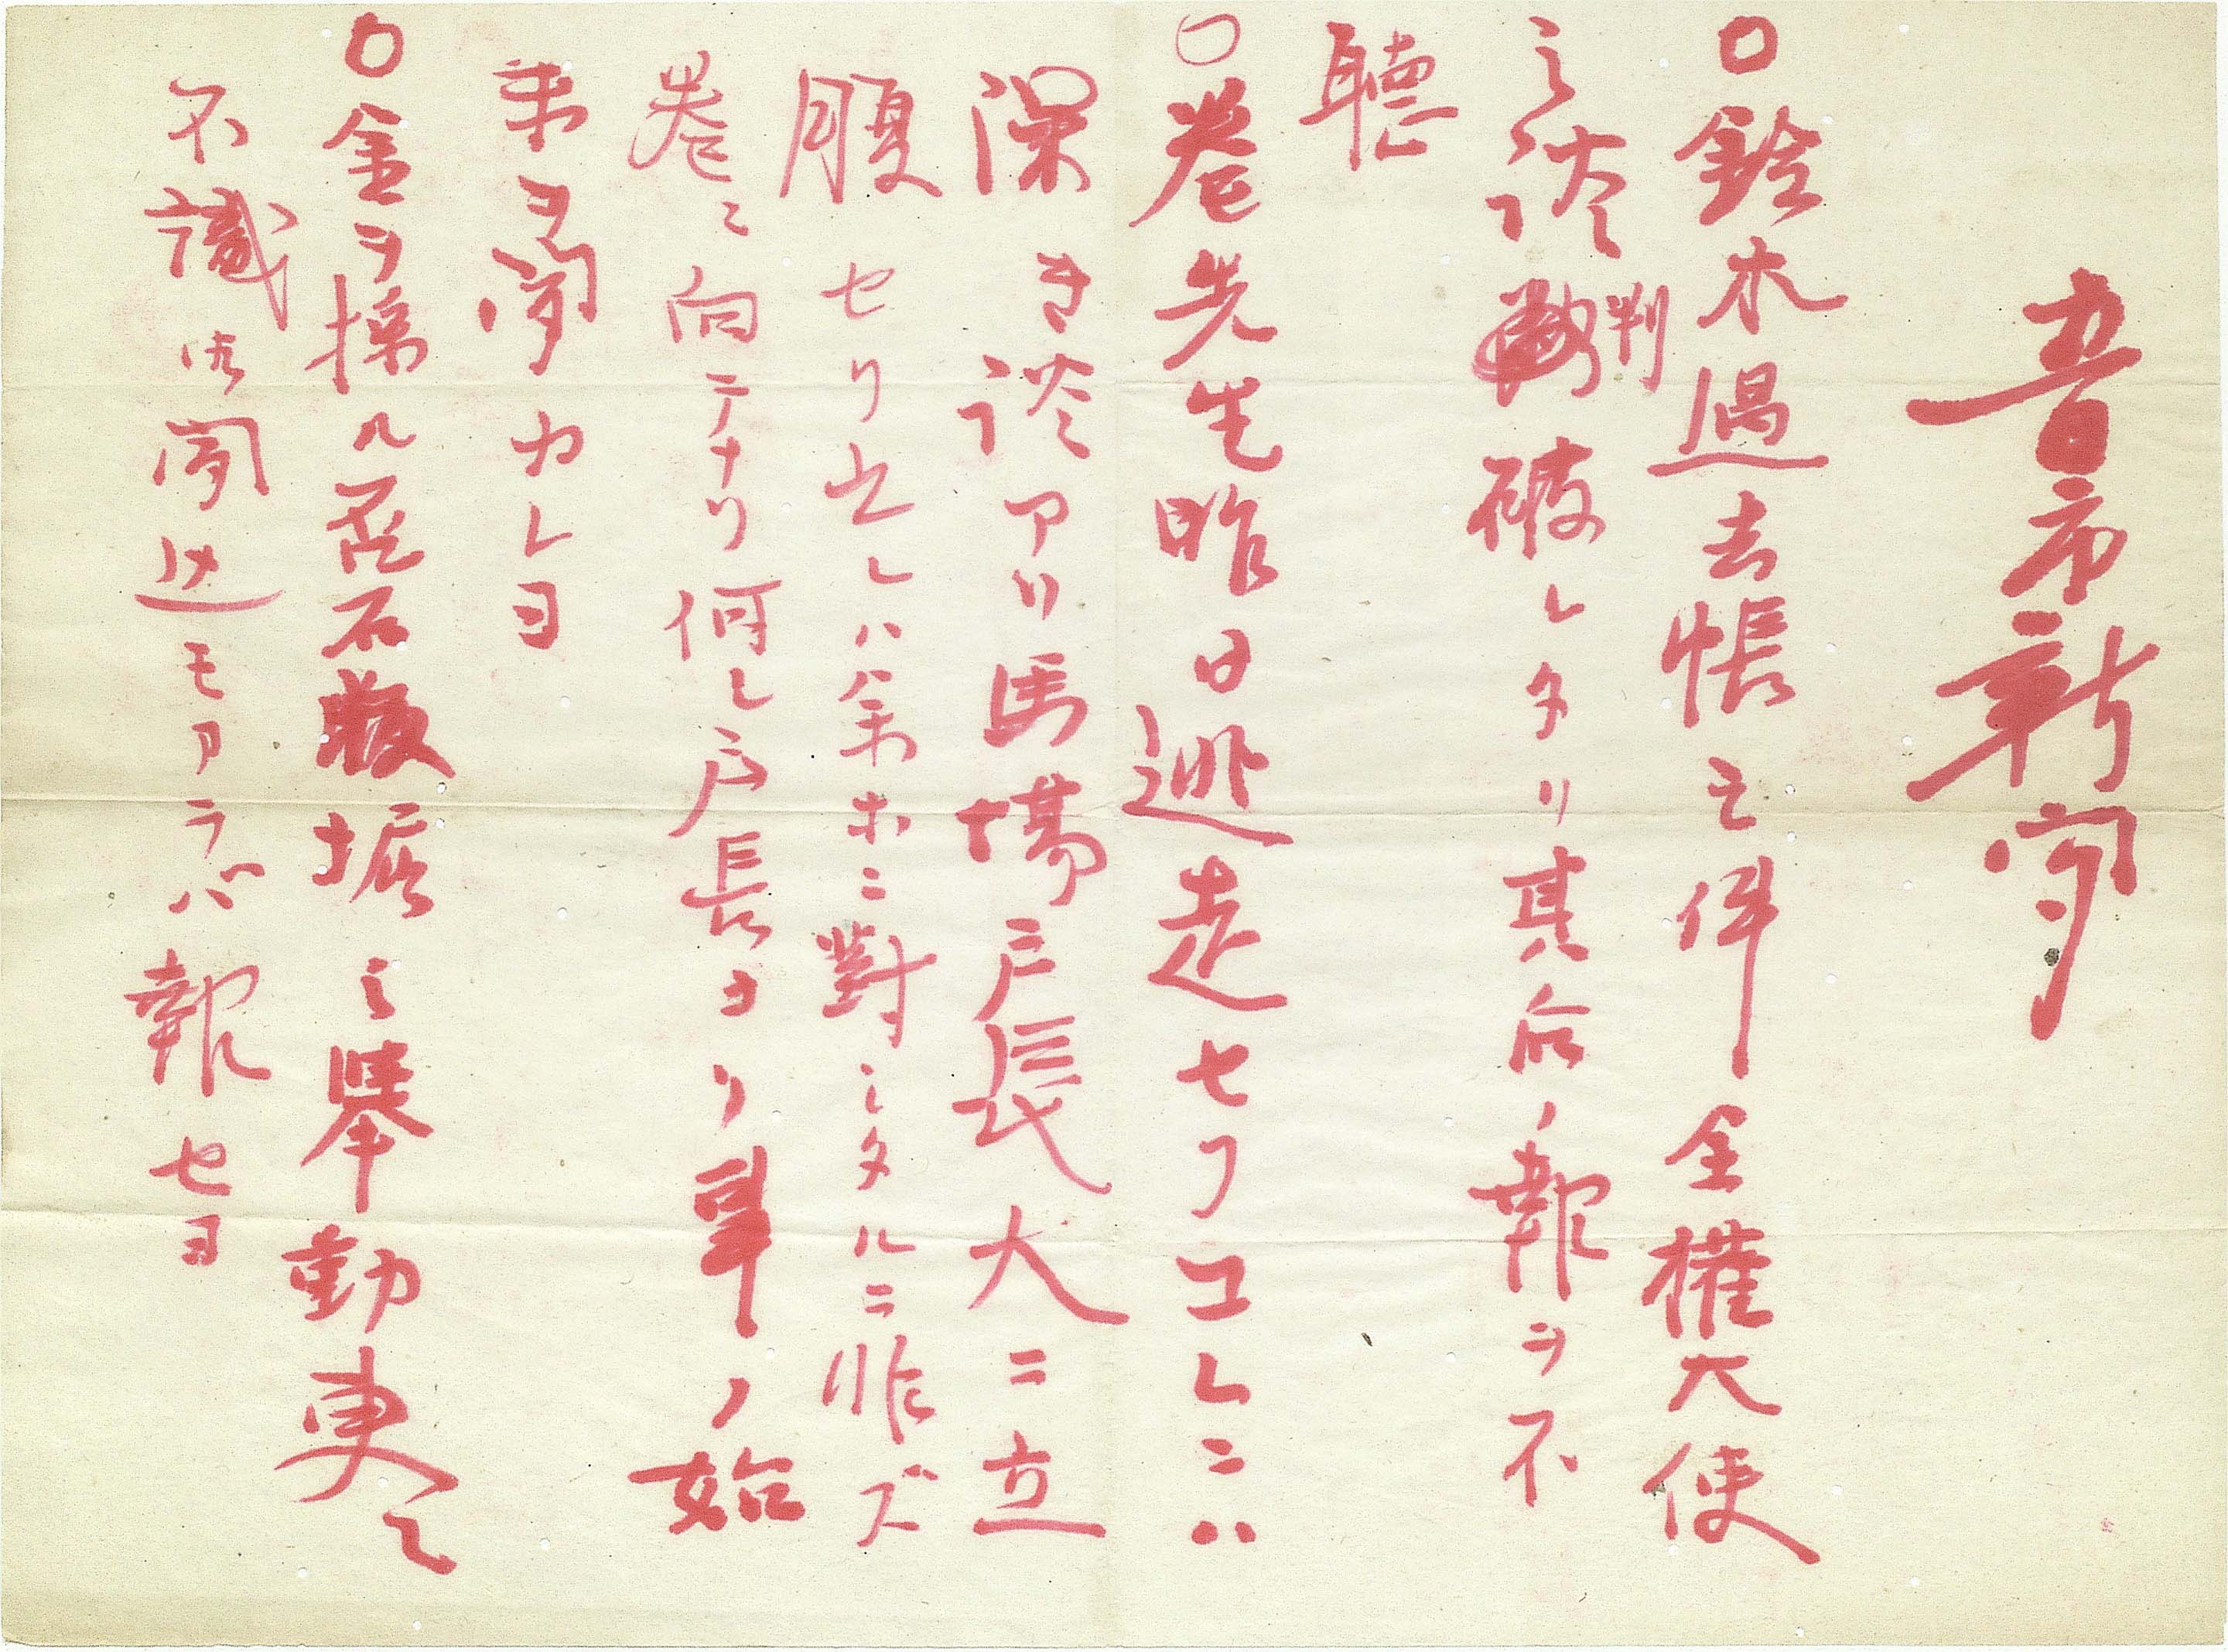 音市新聞
〇鈴木過去帳之件全権大使
之談判破レタリ其后ノ報ヲ不
聴
〇巻先生昨日逃走セリコレニハ
深き談アリ馬場戸長大ニ立
腹セリ立レハ余ホニ對シタルニ非ズ
巻ニ向テナリ何レ戸長ヨリ事ノ始
末ヲ聞カレヨ
〇金ヲ採ル 石 掘之舉動更ニ
不識 聞 モアラバ報セヨ